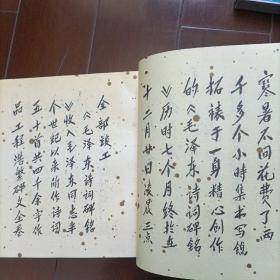 寒暑不同花费了两
千多个小时集书写镌
拓裱于一身精心创作
的《毛泽东诗词碑铭
》历时七个月终於在
十二月廿日凌晨三点
全部竣工
《毛泽东诗词碑铭
》收入毛泽东同志半
个世纪以来所作诗词
五十首共四千余字作
品工程浩繁碑文全卷